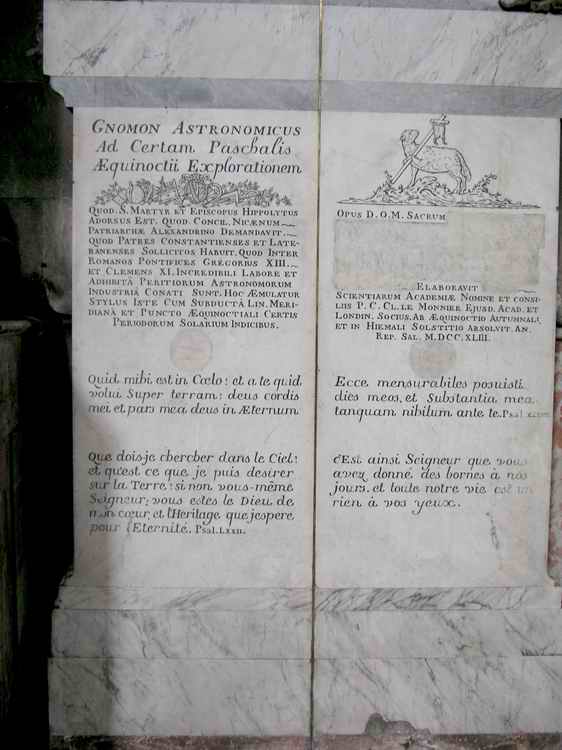 GNOMON ASTRONOMICUS
Ad Certam Paschalis
Æquinoctii Explorationem
QUOD. S. MARTYR ET EPISCOPUS HIPPOLYTUS
ADORSUS EST. QUOD. CONCIL. NICÆNUM
PATRIARCHÆ ALEXANDRINO DEMANDAVIT.
QUOD PATRES CONSTANTIENSES ET LATE-
RANENSES SOLLICITOS HABUIT. QUOD INTER
ROMANOS PONTIFICES GREGORIUS XIII.
ET CLEMENS XI. INCREDIBILI LABORE ET
ADHIBITÂ PERITIORUM ASTRONOMORUM
INDUSTRIÂ CONATI SUNT. HOC ÆMULATUR
STYLUS ISTE CUM SUBDUCTÂ LIN. MERI-
DIANÂ ET PUNCTO ÆQUINOCTIALI CERTIS
PERIODORUM SOLARIUM INDICIBUS.
Quid mihi est in Cœlo? et a te quid
volui Super terram? deus cordis
mei, et pars mea deus in Æternum
Que dois-je chercher dans le Ciel?
et qu'est ce que je puis desirer
sur la Terre? si non vous-même
Seigneur; vous estes le Dieu de
mon cœur, et l'Heritage que j'espere
pour l'Eternité. Psal. LXXII.
OPUS D. O. M. SACRUM
ELABORAVIT
SCIENTIARUM ACADEMIÆ NOMINE ET CONSI-
LIIS P. C. CL. LE MONNIER EJUSD. ACAD. ET
LONDIN. SOCIUS. AB ÆQUINOCTIO AUTUMNALI
ET IN HIEMALI SOLSTITIO ABSOLVIT. AN.
REP. SAL. M.DCC.XLIII.
Ecce mensurabiles posuisti
dies meos, et Substantia mea
tanquam nihilum ante te. Psal.
C'Est ainsi Seigneur que vous
avez donné des bornes à nos
jours. et toute notre vie est un
rien à vos yeux.